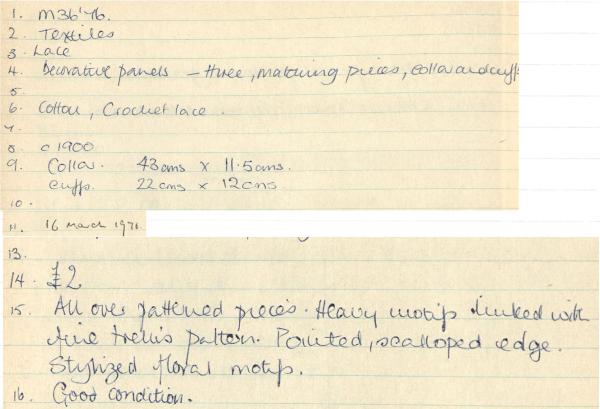 1. M36'76.
2. Textiles
3. Lace
4. Decorative panels – three, matching pieces, collar and cuffs
5.
6. Cotton, Crochet lace.
7.
8. c 1900
9. Collar. 43 cms x 11.5 cms.
Cuffs. 22 cms x 12 cms
10.
11. 16 March 1971.
13.
14. £2
15. All over patterned pieces. Heavy motifs linked with
fine trellis pattern. Pointed, scalloped edge.
Stylized floral motifs.
16. Good condition.